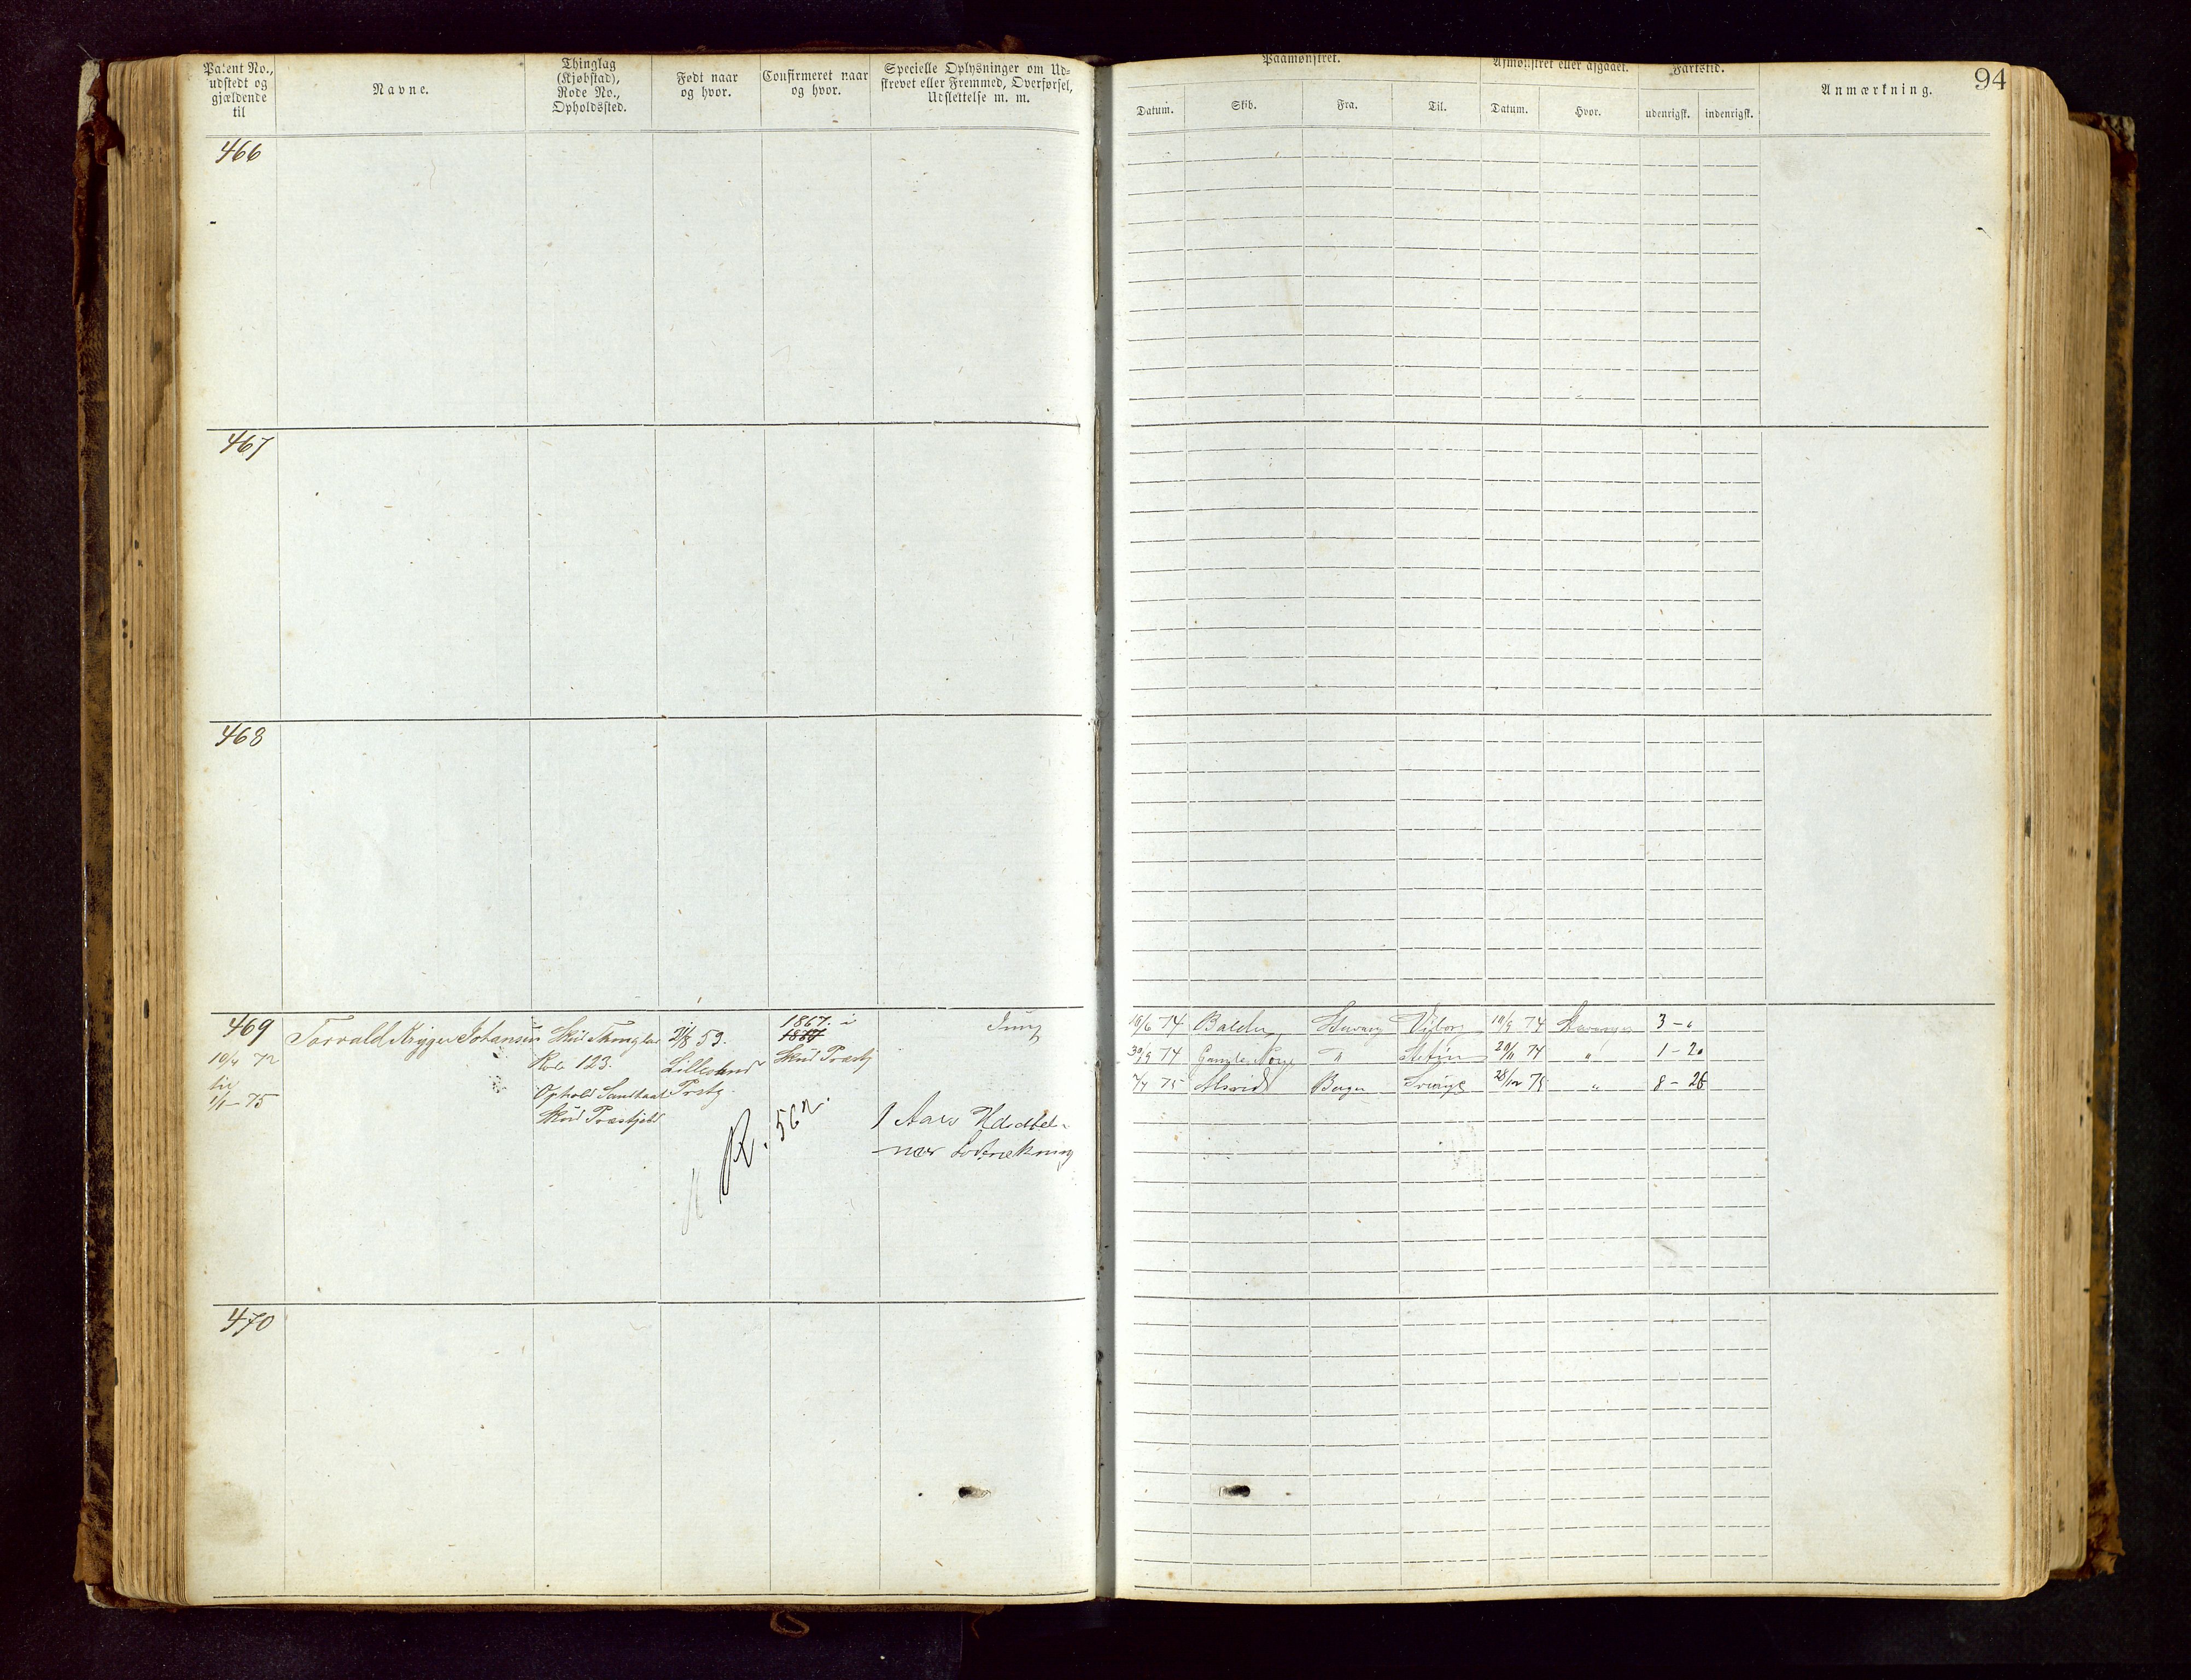 Patent No., udstedt og gjældende til
Navne.
Thinglag (Kjøbstad), Rode No., Opholdssted.
Født naar og hvor.
Confirmeret naar og hvor.
Specielle Oplysninger om Udskrevet eller Fremmed, Overførsel, Udslettelse m. m.
Paamønstret.
Afmønstret eller afgaaet.
Fartstid.
Anmærkning.
94
Datum.
Skib.
Fra.
Til.
Datum.
Hvor.
udenrigsk.
indenrigsk.
466
467
468
469
10/4 72
til
1/1–75
Torvald Rygger Johansen
Skud Thinglav
Rode 123.
Ophold
Skud Præstejeld
2/8 59.
Lillesand
Prstg.
1867. i
Skud Præstg
Jung
R. 562.
1 Aars
10/6 74 Balder Stavang Viborg 10/9 74 Stavanger 3 – "
30/9 74 Gamle Norge " Stetin 20/11 74 " 1 – 20
2/4 75 Alsvid Bergen 28/12 75 " 8 – 26
470